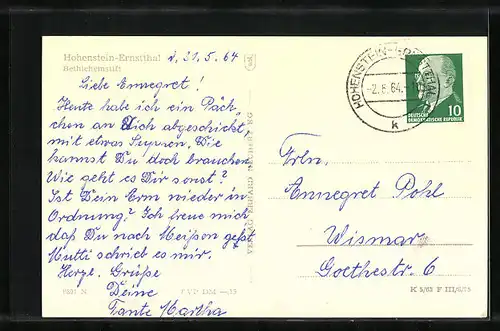 Hohenstein-Ernstthal d, 31.5.64
Bethlehemstift
Liebe Ennegret!
Heute habe ich ein Päck-
chen an Dich abgeschickt
mit etwas
kannst Du doch brauchen
Wie geht es Dir sonst?
Ist Dein Erm wieder in
Ordnung? Ich freue mich
daß Du nach Meißen gehst
Mutti schrieb es mir.
Herzl. Grüße
Deine
Tante Martha
VERLAG ERHARD NEUBERT KG
K 5/63 F III/6/15
HOHENSTEIN-
-2.6.64.
k
DEUTSCHE
DEMOKRATISCHE REPUBLIK
10
Frln.
Ennegret Pohl
Wismar
Goethestr. 6